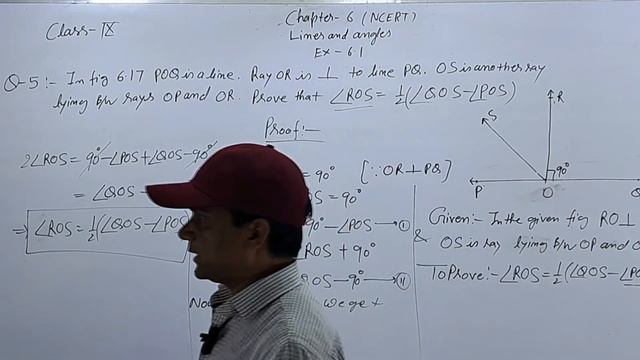 Class-IX
Chapter-6 (NCERT)
Lines and angles
Ex-6.1
Q-5:- In fig 6.17 POQ is a line. Ray OR is ⊥ to line PQ. OS is another ray
lying b/w rays OP and OR. Prove that ∠ROS = 1/2(∠QOS-∠POS)
Proof:-
2∠ROS = 90°-∠POS+∠QOS-90°
= ∠QOS -
⇒ ∠ROS = 1/2(∠QOS-∠POS
= 90° [∵ OR⊥PQ]
= 90°
90° -∠POS → ①
ROS + 90°
-90° → ⑪
we get
R
S
90°
P
O
Q
Given:- In the given fig RO⊥
& OS is ray lying b/w OP and
To Prove:- ∠ROS = 1/2(∠QOS-∠PO